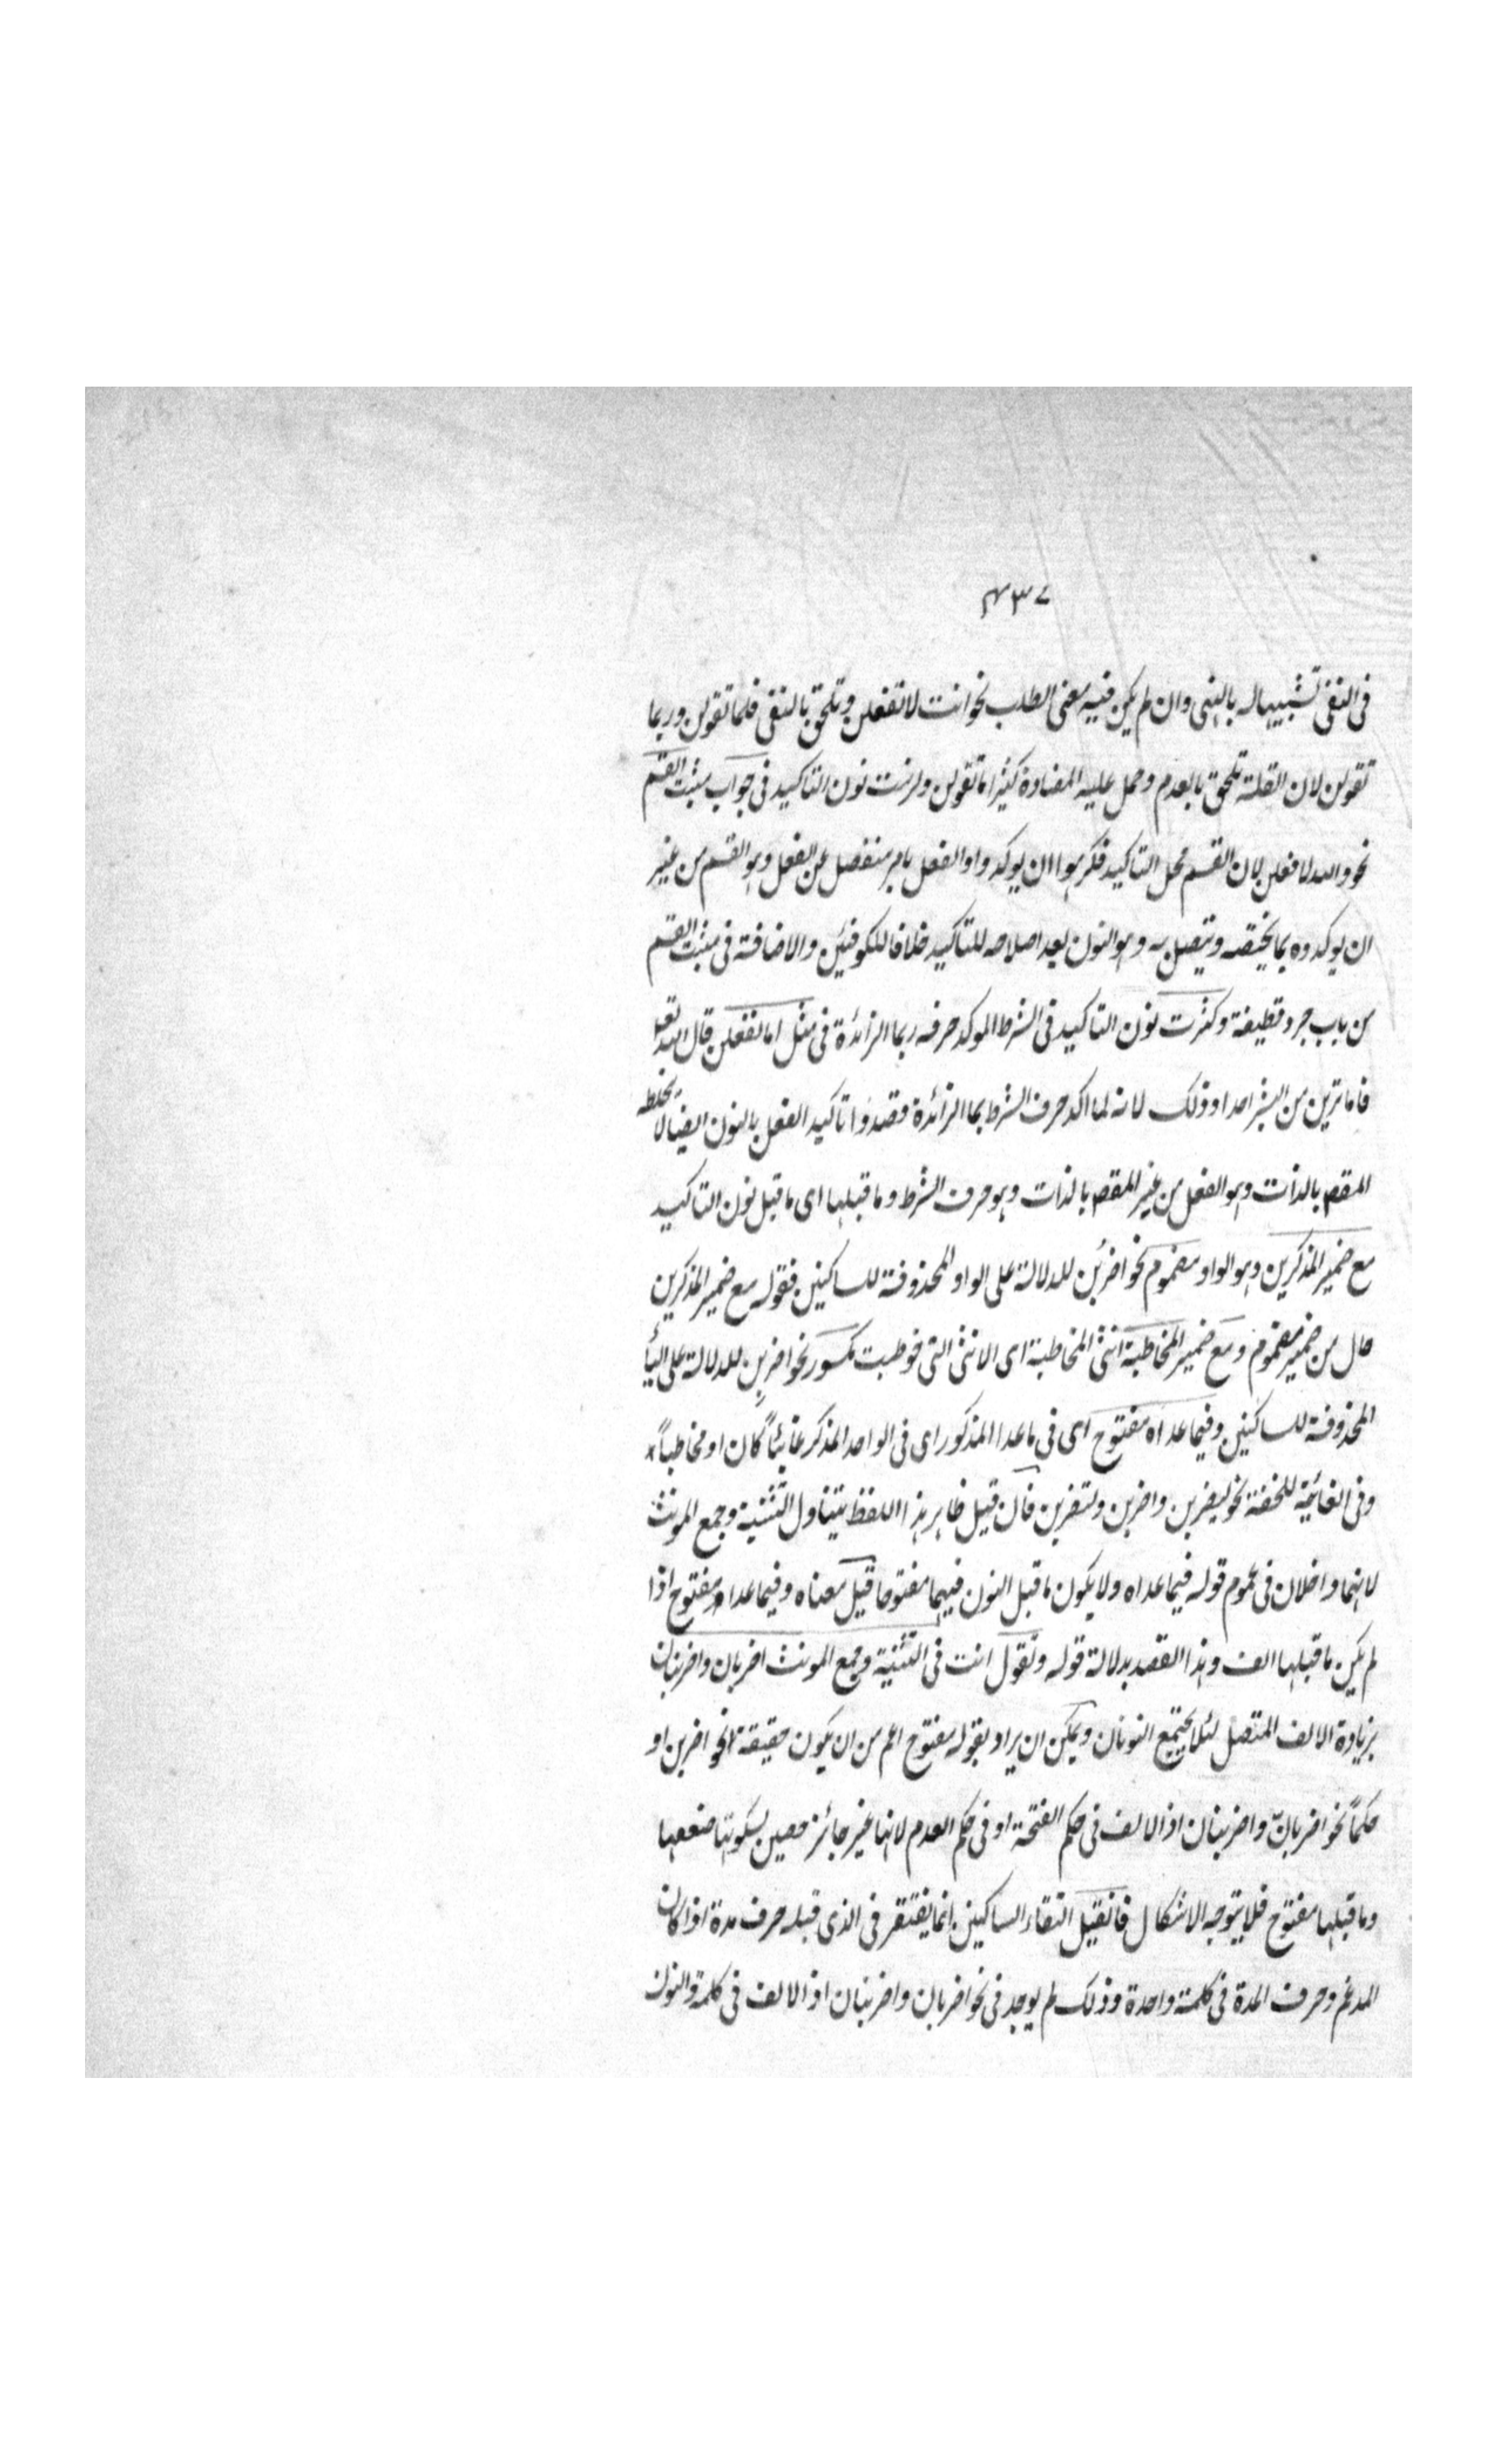 ٤٣٧
فی النفی تشبیها له بالنهی وان لم یکن فیه معنی الطلب نحو انت لا تفعلن وتلحق بالنفی قلما تقولن وربما
تقولن لان القلة تلحق بالعدم وحمل علیه المضادة کثیرا ما تقولن ولزمت نون التاکید فی جواب مثبت القسم
نحو والله لافعلن لان القسم محل التاکید فکرهوا ان یوکدوا الفعل بامر منفصل عن الفعل وهو القسم من غیر
ان یوکدوه بما یختصه ویتصل به وهو النون بعد اصلاحه للتاکید خلافا للکوفیین والاضافة فی مثبت القسم
من باب جرد قطیفة وکثرت نون التاکید فی الشرط الموکد حرفه بما الزائدة فی مثل اما تفعلن قال الله تعا
فاما ترین من البشر احدا وذلک لانه لما اکد حرف الشرط بما الزائدة قصدوا تاکید الفعل بالنون ایضا لا
المقص بالذات وهو الفعل من غیر المقص بالذات وهو حرف الشرط وما قبلها ای ما قبل نون التاکید
مع ضمیر المذکرین وهو الواو مضموم نحو اضربُن للدلالة علی الواو المحذوفة للساکنین فقوله مع ضمیر المذکرین
حال من ضمیر مضموم ومع ضمیر المخاطبة انثی المخاطبة ای الانثی التی خوطبت مکسور نحو اضربِن للدلالة علی الیاء
المحذوفة للساکنین وفیما عداه مفتوح ای فی ما عدا المذکور ای فی الواحد المذکر غائباً کان او مخاطباً
وفی الغائبة للخفة نحو لیضربن واضربن ولتضربن فان قیل ظاهر هذا اللفظ یتناول التثنیة وجمع المونث
لانهما داخلان فی عموم قوله فیما عداه ولا یکون ما قبل النون فیهما مفتوحا قیل معناه وفیما عداه مفتوح اذا
لم یکن ما قبلها الف وهذا القصد بدلالة قوله وتقول انت فی التثنیة وجمع المونث اضربان واضربنان
بزیادة الالف المتصل لئلا یجتمع النونان ویمکن ان یراد بقوله مفتوح اعم من ان یکون حقیقة نحو اضربن او
حکماً نحو اضربانّ واضربنان اذ الالف فی حکم الفتحة او فی حکم العدم لانها غیر حائز حصین لسکونها ضعفها
وما قبلها مفتوح فلا یتوجه الاشکال فان قیل التقاء الساکنین انما یغتفر فی الذی قبله حرف مدة اذا کان
المدغم وحرف المدة فی کلمة واحدة وذلک لم یوجد فی نحو اضربان واضربنان اذ الالف فی کلمة والنون